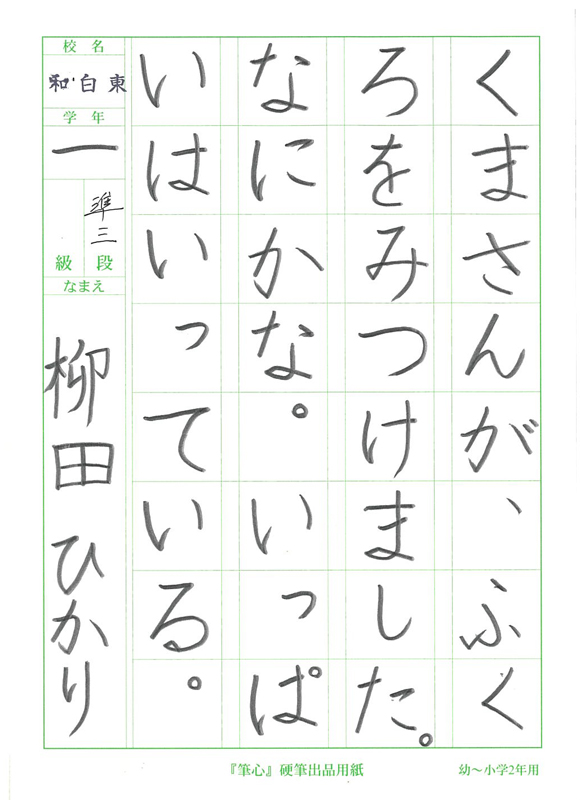 くまさんが、ふく
ろをみつけました。
なにかな。いっぱ
いはいっている。
校名
和白東
学年
一
準三
級段
なまえ
柳田ひかり
『筆心』硬筆出品用紙
幼〜小学2年用